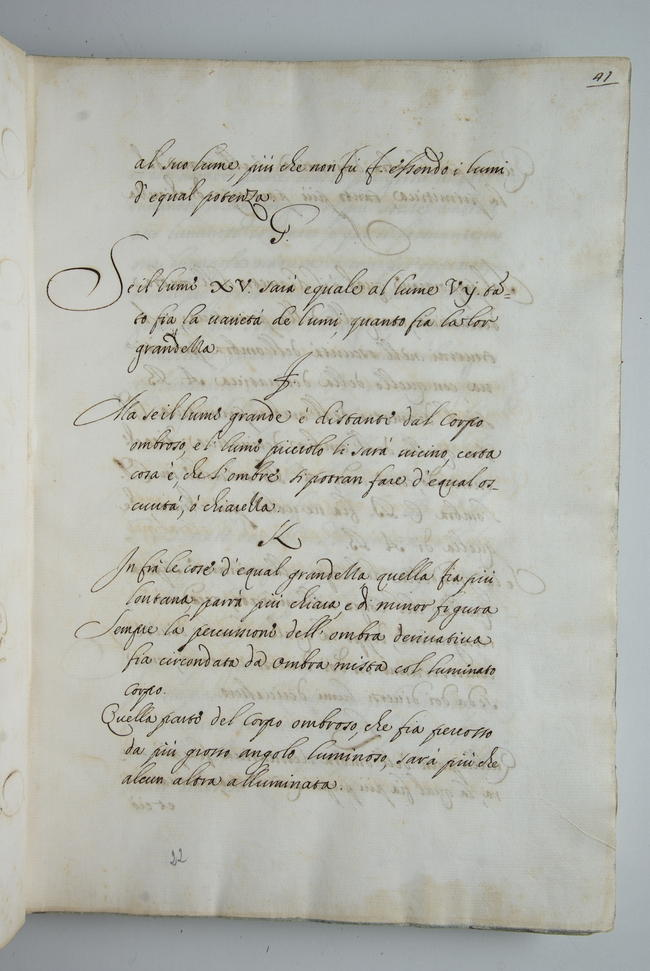 41
al suo lume, più che non fu F. essendo i lumi
d'equal potenza.
G.
Se il lume XV. sarà equale al lume Vy. tã=
to fia la varietà de lumi, quanto fia la lor
grandezza
J.
Ma se il lume grande è distante dal corpo
ombroso, e l' lume piccolo li sarà vicino, certa
cosa è, che l'ombre si potran fare d'equal os=
curità, ò chiarezza.
K
In frà le cose d'equal grandezza quella fia più
lontana parrà più chiara, e di minor figura
Sempre la percussione dell' ombra derivativa
fia circondata da ombra mista col luminato
corpo.
Quella parte del corpo ombroso, che fia percosso
da più grosso angolo luminoso, sarà più che
alcun altra alluminata.
22